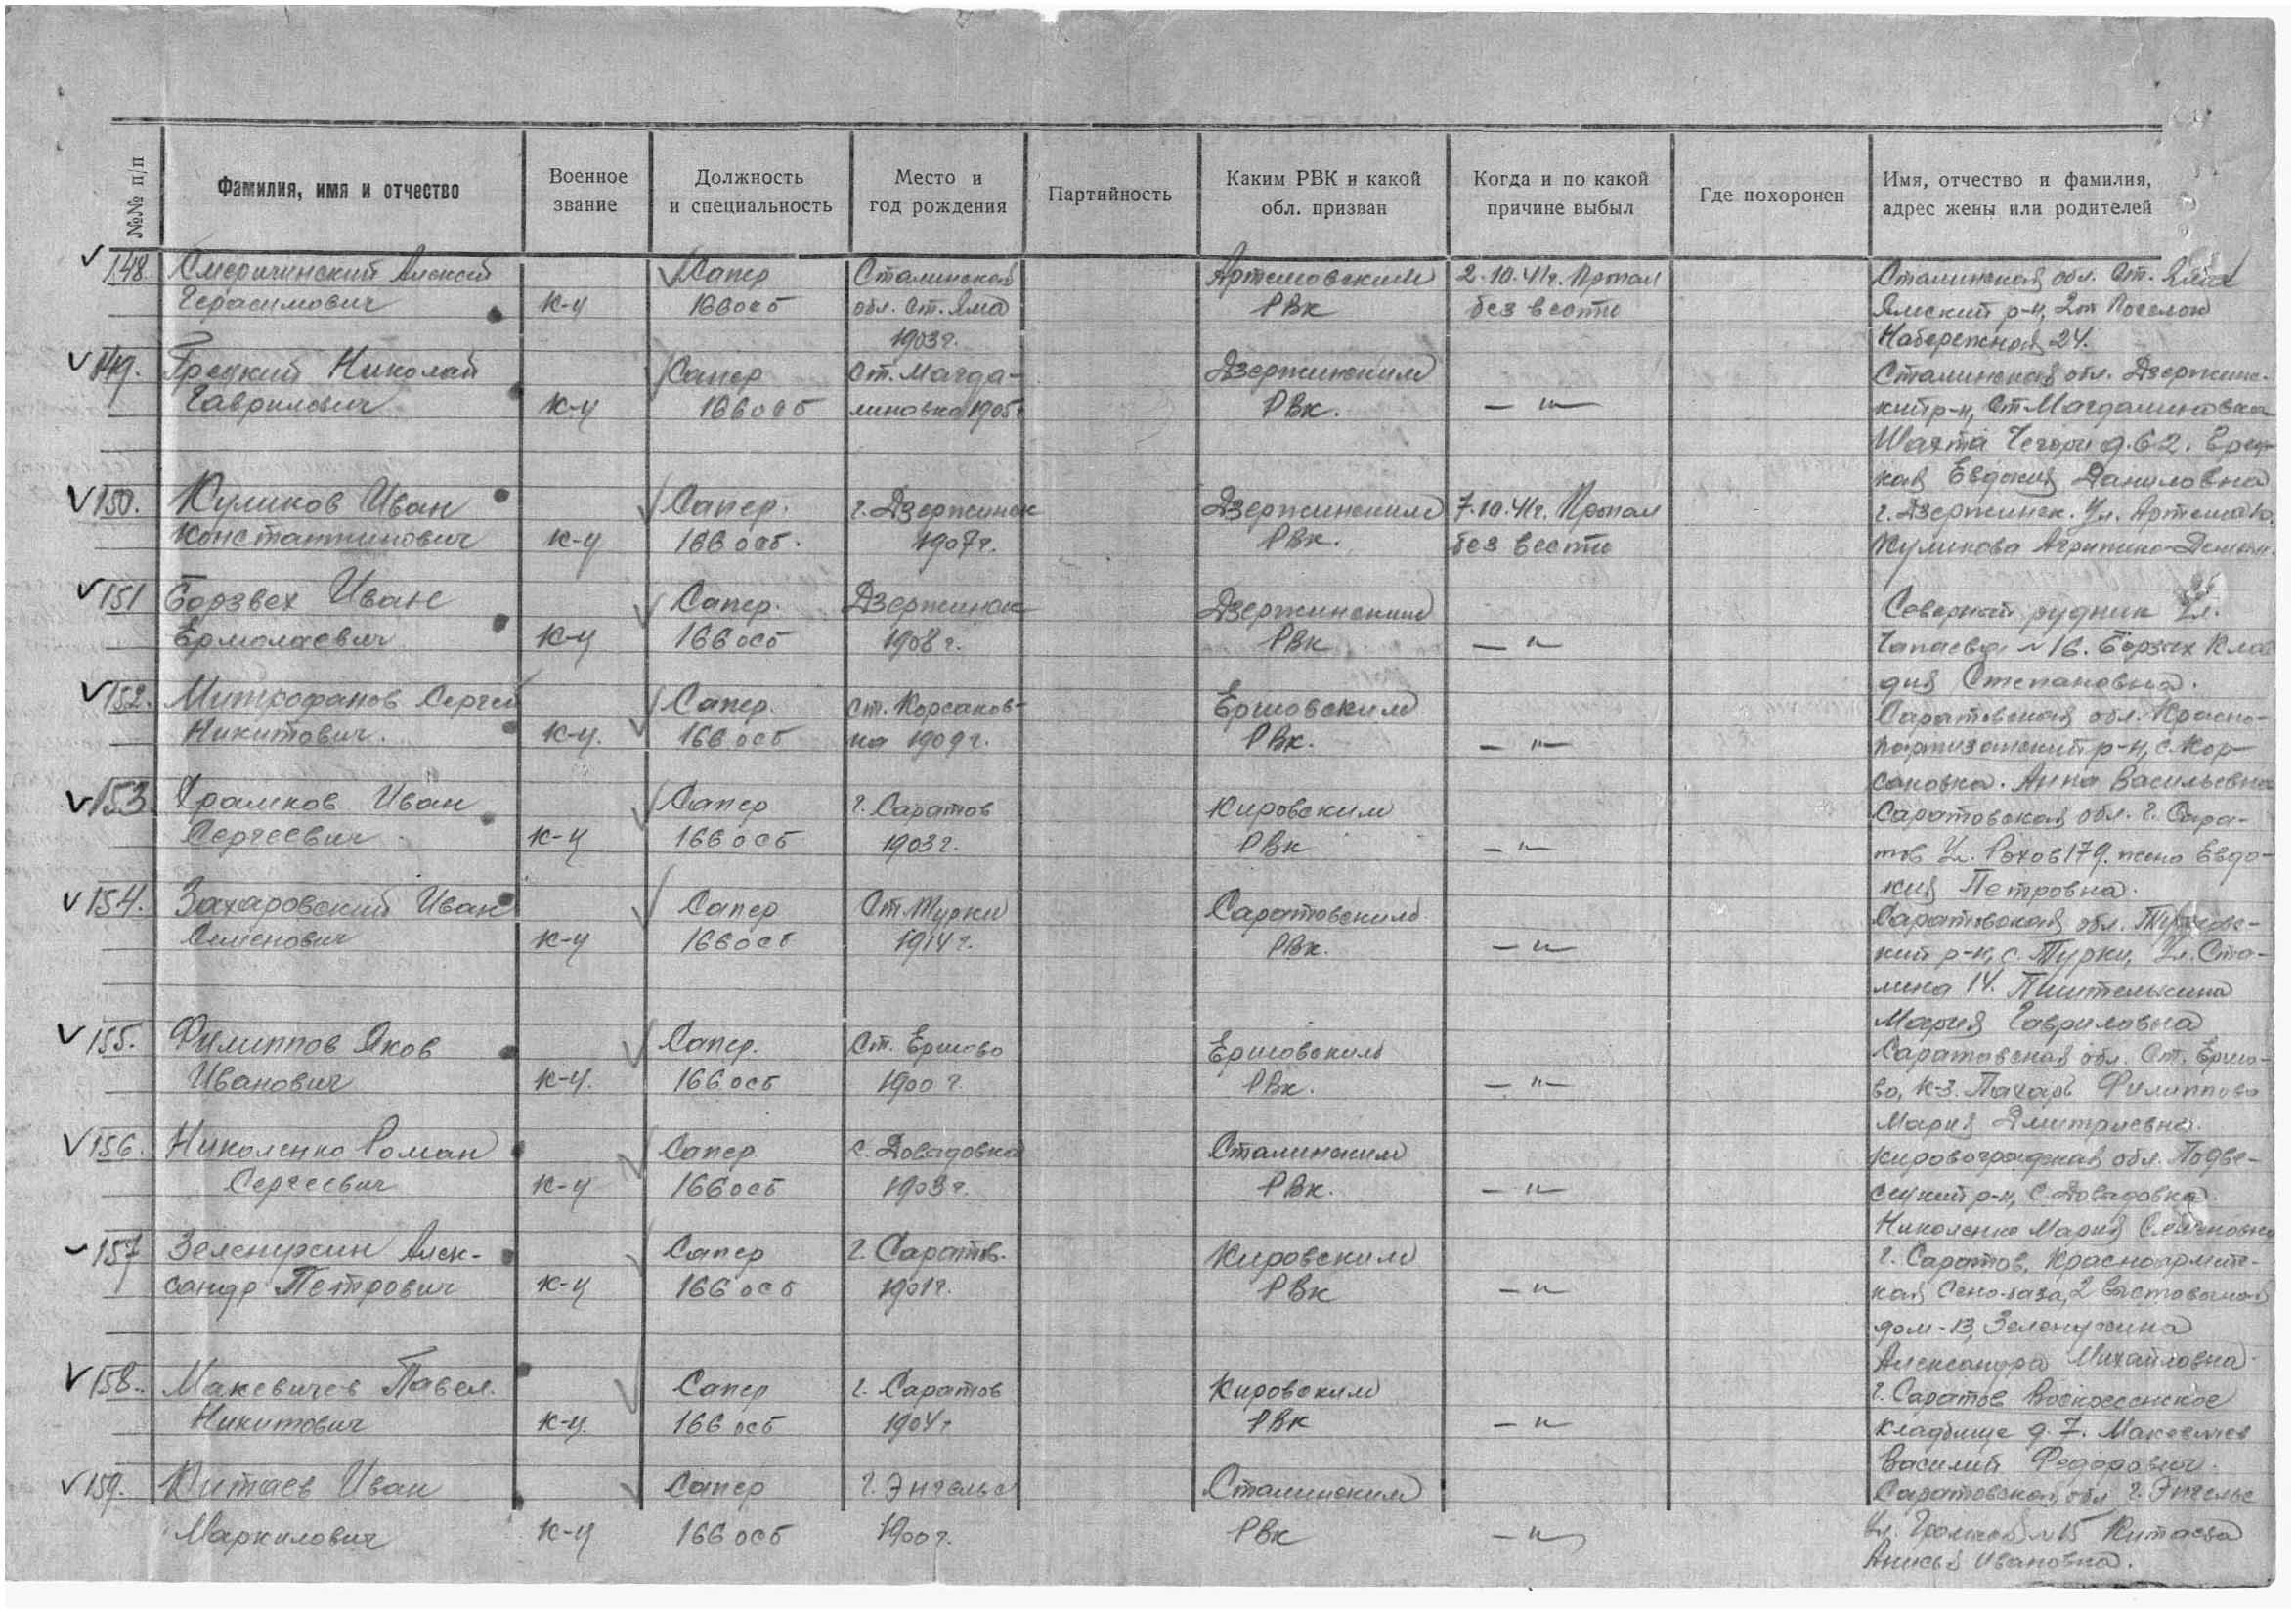 №№ п/п
Фамилия, имя и отчество
Военное
звание
Должность
и специальность
Место и
год рождения
Партийность
Каким РВК и какой
обл. призван
Когда и по какой
причине выбыл
Где похоронен
Имя, отчество и фамилия,
адрес жены или родителей
148. Алексей Сапер Сталинская Артемовским 2.10.41г. Пропал Сталинская обл. ст. Яма
Герасимович к-ц 166 осб обл. ст. Яма РВК без вести Ямский р-н, 2й Поселок
1903г. Набережная 24.
149. Грецкий Николай Сапер ст. Магда- Дзержинским Сталинская обл. Дзержинс-
Гаврилович к-ц 166 осб линовка 1905г РВК. — " — кий р-н, ст Магдалиновка
Шахта д. 62.
кая Евдокия Даниловна
150. Куликов Иван Сапер. г. Дзержинск Дзержинским 7.10.41г. Пропал г. Дзержинск. Ул. Артема
Константинович к-ц 166 осб. 1907г. РВК. без вести Куликова
151 Борзвех Иван Сапер. Дзержинск Дзержинским Северный рудник Ул.
Ермолаевич к-ц 166 осб 1908г. РВК — " Чапаева №16.
дия Степановна.
152. Митрофанов Сергей Сапер. ст. Корсаков- Ершовским Саратовская обл. Красно-
Никитович. к-ц. 166 осб ка 1909г. РВК. — " — партизанский р-н, с. Кор-
саковка. Анна Васильевна
153. Храмков Иван Сапер г. Саратов Кировским Саратовская обл. г. Сара-
Сергеевич к-ц 166 осб 1903г. РВК — " — тов Ул. 179. жена Евдо-
кия Петровна.
154. Захаровский Иван Сапер Ст Турки Саратовским Саратовская обл.
Семенович к-ц 166 осб 1914г. РВК. — " — кий р-н, с. Турки, Ул. Ста-
лина 14.
Мария Гавриловна
155. Филиппов Яков Сапер. Ст. Ершово Ершовским Саратовская обл. Ст. Ершо-
Иванович к-ц. 166 осб 1900г. РВК. — " — во, к-з. Пахарь Филиппова
Мария Дмитриевна.
156. Николенко Роман Сапер с. Довадовка Сталинским Кировоградская обл.
Сергеевич к-ц 166 осб 1903г. РВК. — " — р-н, с. Довадовка.
Николенко Мария Семеновна
157 Зеленужин Алек- Сапер г. Саратов. Кировским г. Саратов, Красноармейс-
сандр Петрович к-ц 166 осб 1901г. РВК — " кая
дом-13, Зеленужина
Александра Михайловна.
158. Макевичев Павел. Сапер г. Саратов Кировским г. Саратов Воскресенское
Никитович к-ц. 166 осб 1904г РВК — " — кладбище д. 7. Макевичев
Василий Федорович.
159. Китаев Иван Сапер г. Энгельс Сталинским Саратовская обл г. Энгельс
Маркилович к-ц 166 осб 1900г. РВК — " — Ул. №15 Китаева
Анисья Ивановна.